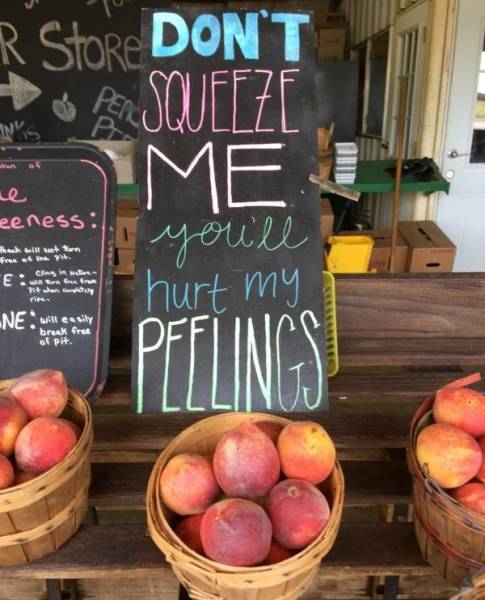 R STORE
DON'T
SQUEEZE
ME
you'll
hurt my
PEELINGS
eeness:
Peach will not turn
free of the pit.
E: Cling in Nature-
will turn free from
Pit when completely
ripe.
ONE: will easily
break free
of pit.